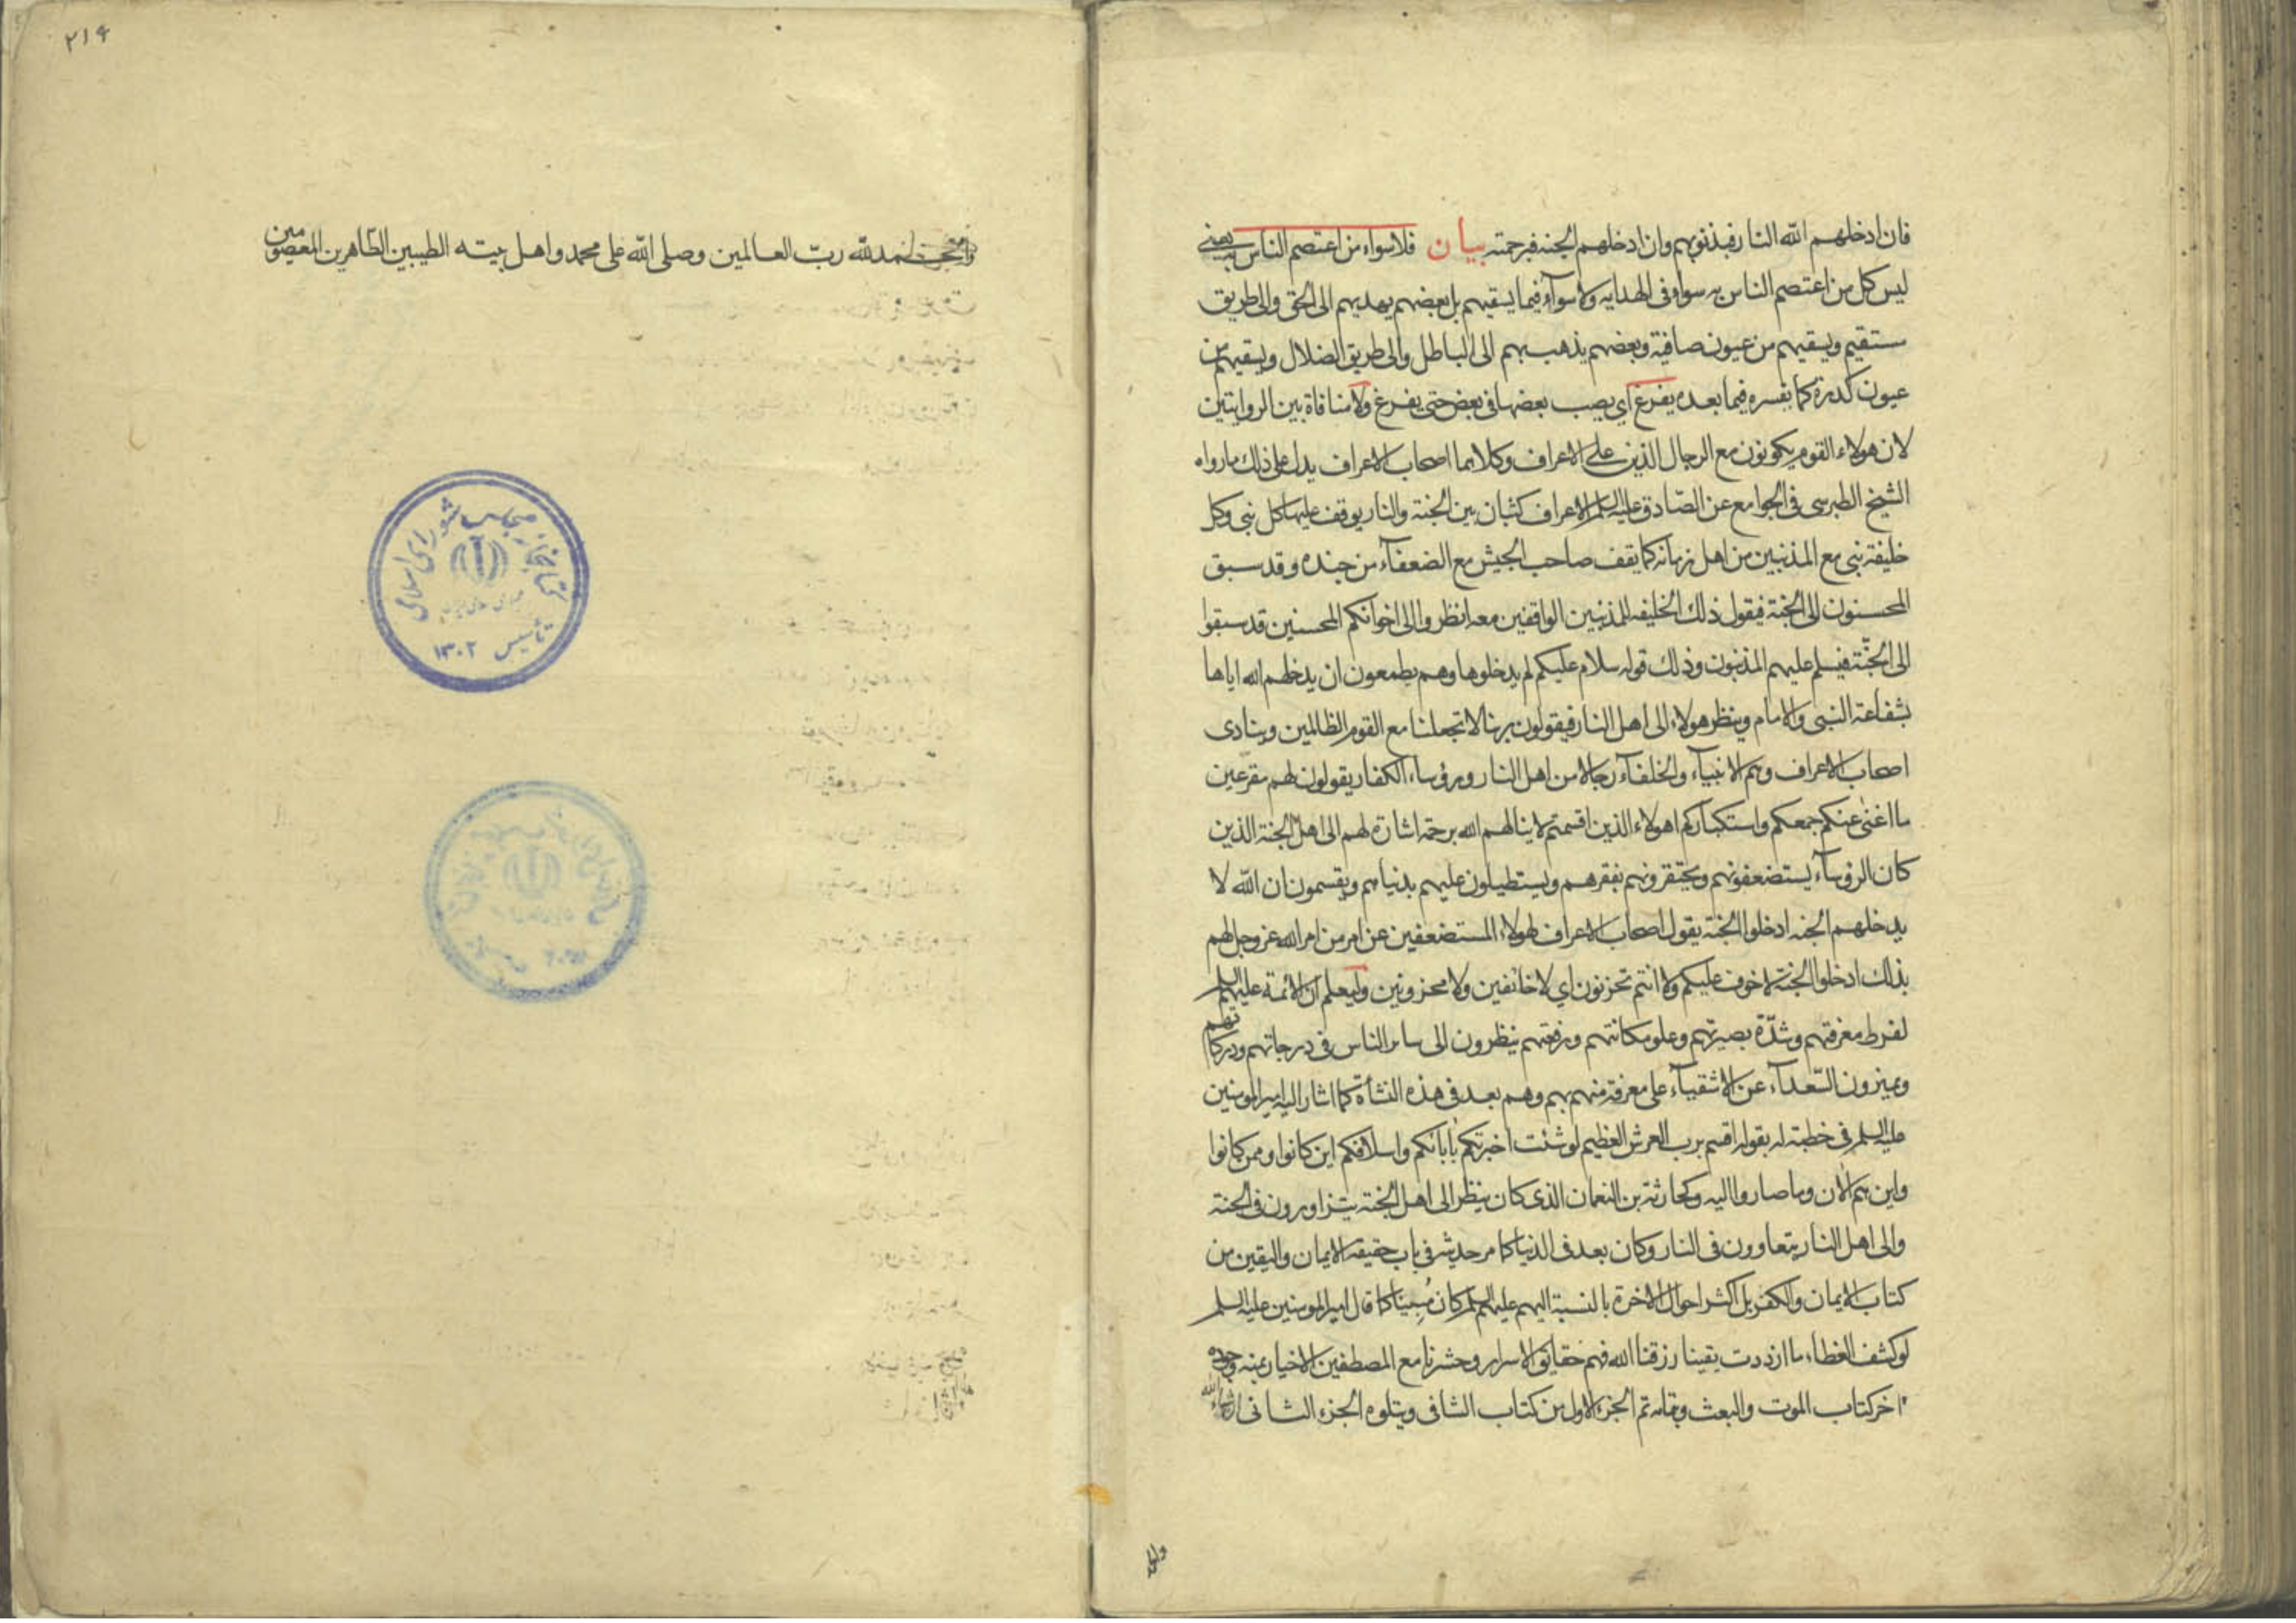 فان ادخلهم الله النار فبذنوبهم وان ادخلهم الجنه فبرحمته بيان فلا سواء من اعتصم الناس به يعنى
ليس كل من اعتصم الناس به سواء فى الهدايه ولا سواء فيما يسقيهم بل بعضهم يهديهم الى الحق والى طريق
مستقيم ويسقيهم من عيون صافية وبعضهم يذهب بهم الى الباطل والى طريق الضلال ويسقيهم من
عيون كدرة كما يفسره فيما بعده يفرغ اي يصب بعضها فى بعض حتى يفرغ ولا منافاة بين الروايتين
لان هولاء القوم يكونون مع الرجال الذين على الاعراف وكلاهما اصحاب الاعراف يدل على ذلك ما رواه
الشيخ الطبرسى فى الجوامع عن الصّادق عليه السلم الاعراف كثبان بين الجنة والنار يوقف عليها كل نبى وكل
خليفة نبى مع المذنبين من اهل زمانه كما يقف صاحب الجيش مع الضعفآء من جنده وقد سبق
المحسنون الى الجنة فيقول ذلك الخليفه للمذنبين الواقفين معه انظروا الى اخوانكم المحسنين قد سبقوا
الى الجنّة فيسلم عليهم المذنبون وذلك قوله سلام عليكم لم يدخلوها وهم يطمعون ان يدخلهم الله اياها
بشفاعة النبى والامام وينظر هولاء الى اهل النار فيقولون ربنا لا تجعلنا مع القوم الظالمين وينادى
اصحاب الاعراف وهم الانبيآء والخلفآء رجالا من اهل النار ورؤساء الكفار يقولون لهم مقرعين
ما اغنى عنكم جمعكم واستكباركم اهولاء الذين اقسمتم لا ينالهم الله برحمة اشارة لهم الى اهل الجنة الذين
كان الروسآء يستضعفونهم ويحتقرونهم بفقرهم ويستطيلون عليهم بدنياهم ويقسمون ان الله لا
يدخلهم الجنه ادخلوا الجنة يقول اصحاب الاعراف لهولاء المستضعفين عن امر من امر الله عز وجل لهم
بذلك ادخلوا الجنة لا خوف عليكم ولا انتم تحزنون اي لا خائفين ولا محزونين وليعلم ان الائمة عليهم السلم
لفرط معرفتهم وشدّة بصيرتهم وعلو مكانتهم ورفعتهم ينظرون الى سائر الناس فى درجاتهم ودركاتهم
ويميزون السّعدآء عن الاشقيآء على معرفة منهم بهم وهم بعد فى هذه النشأة كما اشار اليه امير المومنين
عليه السلم فى خطبة له بقوله اقسم برب العرش العظيم لو شئت اخبرتكم بابائكم واسلافكم اين كانوا وممن كانوا
واين هم الآن وما صاروا اليه وكحارثة بن النعمان الذى كان ينظر الى اهل الجنة يتزاورون فى الجنة
والى اهل النار يتعاوون فى النار وكان بعد فى الدنيا كما مر حديثه فى باب حقيقة الايمان واليقين من
كتاب الايمان والكفر بل اكثر احوال الاخرة بالنسبة اليهم عليهم السلم كان مُبينا كما قال امير المومنين عليه السلم
لو كشف الغطاء ما ازددت يقينا رزقنا الله فهم حقايق الاسرار وحشرنا مع المصطفين الاخيار بمنه وجوده
اخر كتاب الموت والبعث وبتمامه تم الجزء الاول من كتاب الشافى ويتلوه الجزء الثانى ان شاء الله
والحمد
٢١٤
والحمد لله ربّ العالمين وصلى الله على محمد واهل بيته الطيبين الطّاهرين المعصومين
كتابخانه مجلس شورای اسلامی
تأسیس ١٣٠٢